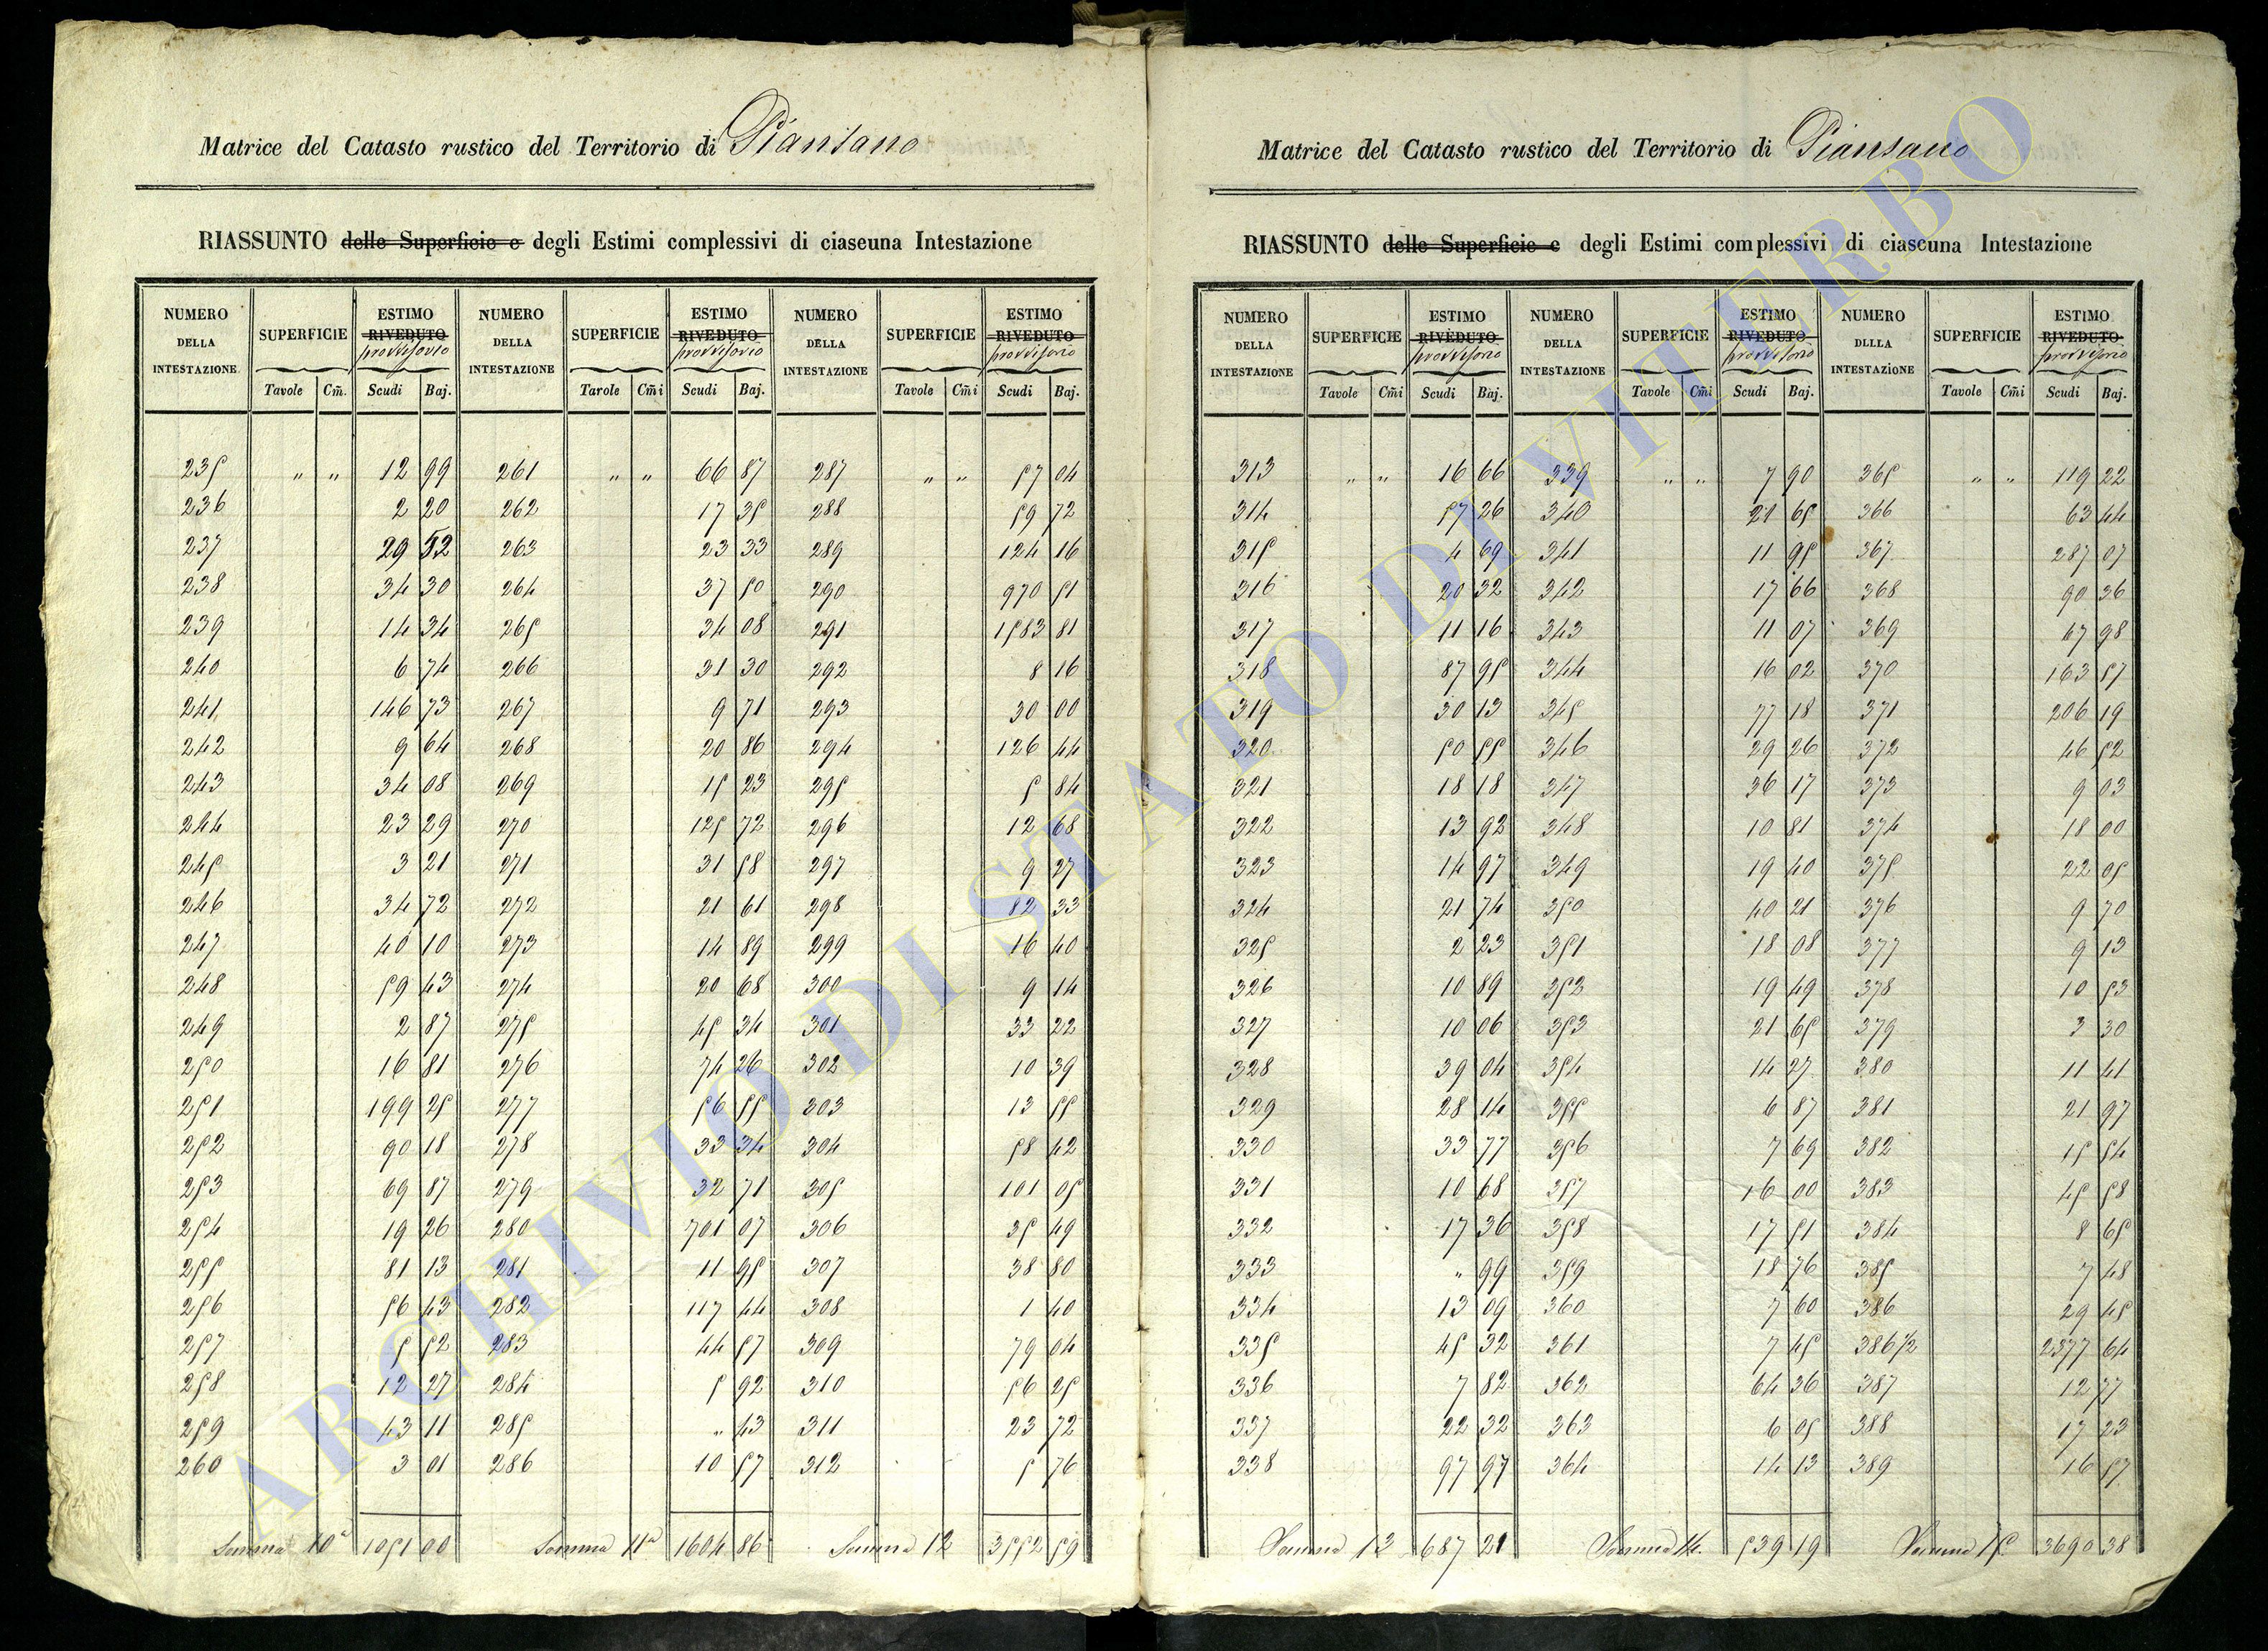 Matrice del Catasto rustico del Territorio di Piansano
RIASSUNTO delle Superficie e degli Estimi complessivi di ciaseuna Intestazione
NUMERO DELLA INTESTAZIONE SUPERFICIE ESTIMO RIVEDUTO provvisorio NUMERO DELLA INTESTAZIONE SUPERFICIE ESTIMO RIVEDUTO provvisorio NUMERO DELLA INTESTAZIONE SUPERFICIE ESTIMO RIVEDUTO provvisorio
Tavole Cm̃. Scudi Baj. Tavole Cm̃i Scudi Baj. Tavole Cm̃i Scudi Baj.
235 " " 12 99 261 " " 66 87 287 " " 57 04
236 2 20 262 17 35 288 59 72
237 29 52 263 23 33 289 124 16
238 34 30 264 37 50 290 970 51
239 14 34 265 34 08 291 1583 81
240 6 74 266 31 30 292 8 16
241 146 73 267 9 71 293 30 00
242 9 64 268 20 86 294 126 44
243 34 08 269 15 23 295 5 84
244 23 29 270 125 72 296 12 68
245 3 21 271 31 58 297 9 27
246 34 72 272 21 61 298 82 33
247 40 10 273 14 89 299 16 40
248 59 43 274 20 68 300 9 14
249 2 87 275 45 34 301 33 22
250 16 81 276 74 26 302 10 39
251 199 25 277 56 55 303 13 55
252 90 18 278 33 34 304 58 42
253 69 87 279 32 71 305 101 05
254 19 26 280 701 07 306 35 49
255 81 13 281 11 95 307 38 80
256 56 43 282 117 44 308 1 40
257 5 52 283 44 57 309 79 04
258 12 27 284 5 92 310 56 25
259 43 11 285 " 43 311 23 72
260 3 01 286 10 57 312 5 76
Somma 10a 1051 00 Somma 11a 1604 86 Somma 12 3552 59
Matrice del Catasto rustico del Territorio di Piansano
RIASSUNTO delle Superficie e degli Estimi complessivi di ciascuna Intestazione
NUMERO DELLA INTESTAZIONE SUPERFICIE ESTIMO RIVEDUTO provvisorio NUMERO DELLA INTESTAZIONE SUPERFICIE ESTIMO RIVEDUTO provvisorio NUMERO DLLLA INTESTAZIONE SUPERFICIE ESTIMO RIVEDUTO provvisorio
Tavole Cm̃i Scudi Baj. Tavole Cm̃i Scudi Baj. Tavole Cm̃i Scudi Baj.
313 " " 16 66 339 " " 7 90 365 " " 119 22
314 57 26 340 21 65 366 63 44
315 4 69 341 11 95 367 287 07
316 20 32 342 17 66 368 90 36
317 11 16 343 11 07 369 67 98
318 87 95 344 16 02 370 163 57
319 30 13 345 77 18 371 206 19
320 50 55 346 29 26 372 46 52
321 18 18 347 36 17 373 9 03
322 13 92 348 10 81 374 18 00
323 14 97 349 19 40 375 22 05
324 21 74 350 40 21 376 9 70
325 2 23 351 18 08 377 9 13
326 10 89 352 19 49 378 10 53
327 10 06 353 21 65 379 3 30
328 39 04 354 14 27 380 11 41
329 28 14 355 6 87 381 21 97
330 33 77 356 7 69 382 15 54
331 10 68 357 16 00 383 45 58
332 17 36 358 17 51 384 8 65
333 " 99 359 18 76 385 7 48
334 13 09 360 7 60 386 29 45
335 45 32 361 7 45 386 1/2 2377 64
336 7 82 362 64 36 387 12 77
337 22 32 363 6 05 388 17 23
338 97 97 364 14 13 389 16 57
Somma 13 687 21 Somma 14. 539 19 Somma 15 3690 38
ARCHIVIO DI STATO DI VITERBO